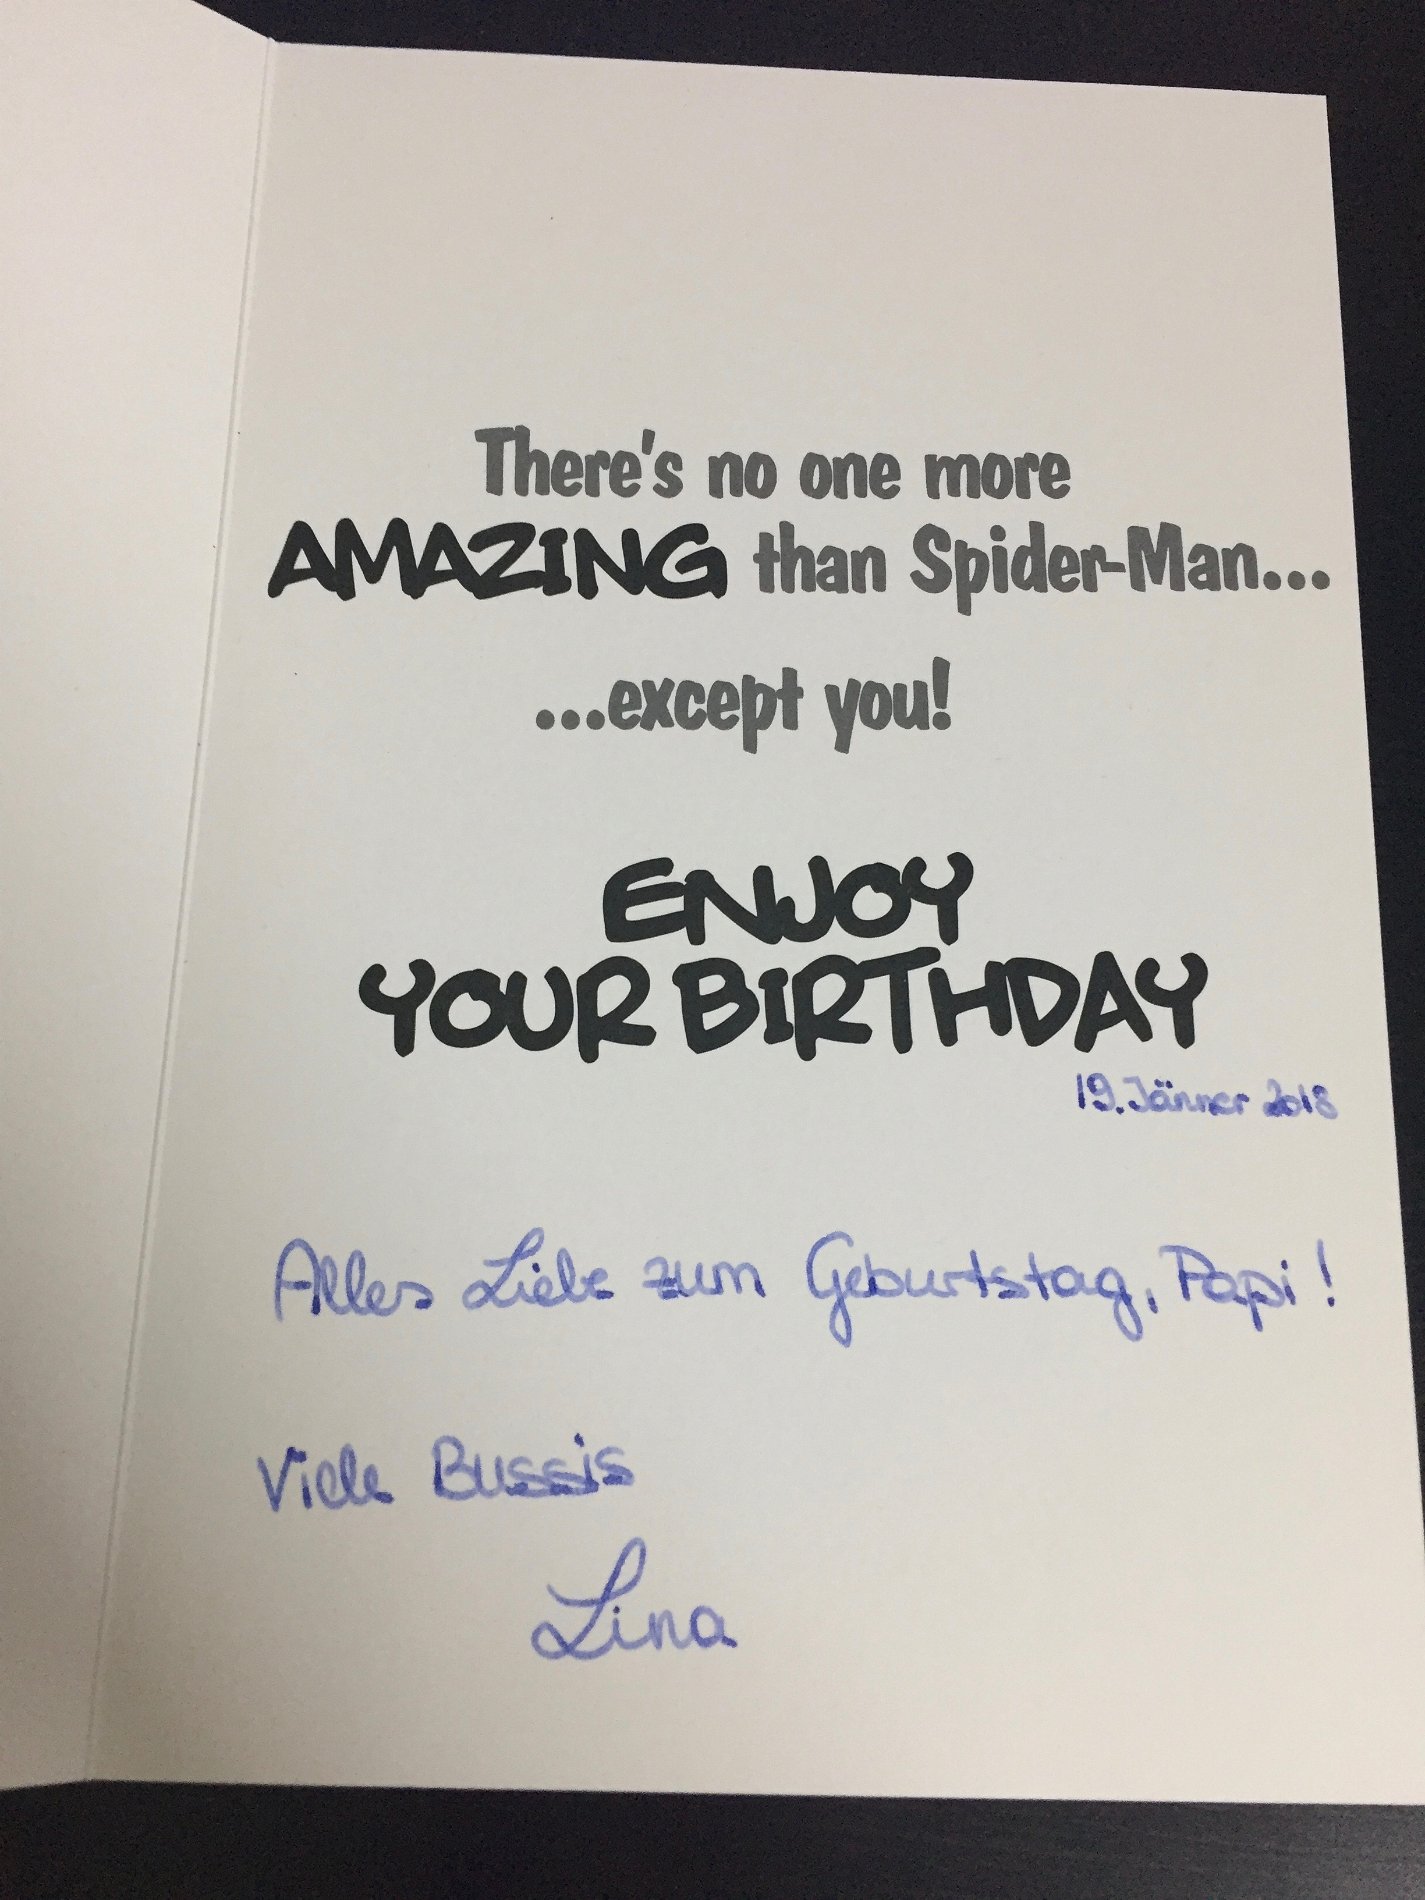 There's no one more
AMAZING than Spider-Man...
...except you!
ENJOY
YOUR BIRTHDAY
19. Jänner 2018
Alles Liebe zum Geburtstag, Papi!
Viele Bussis
Lina